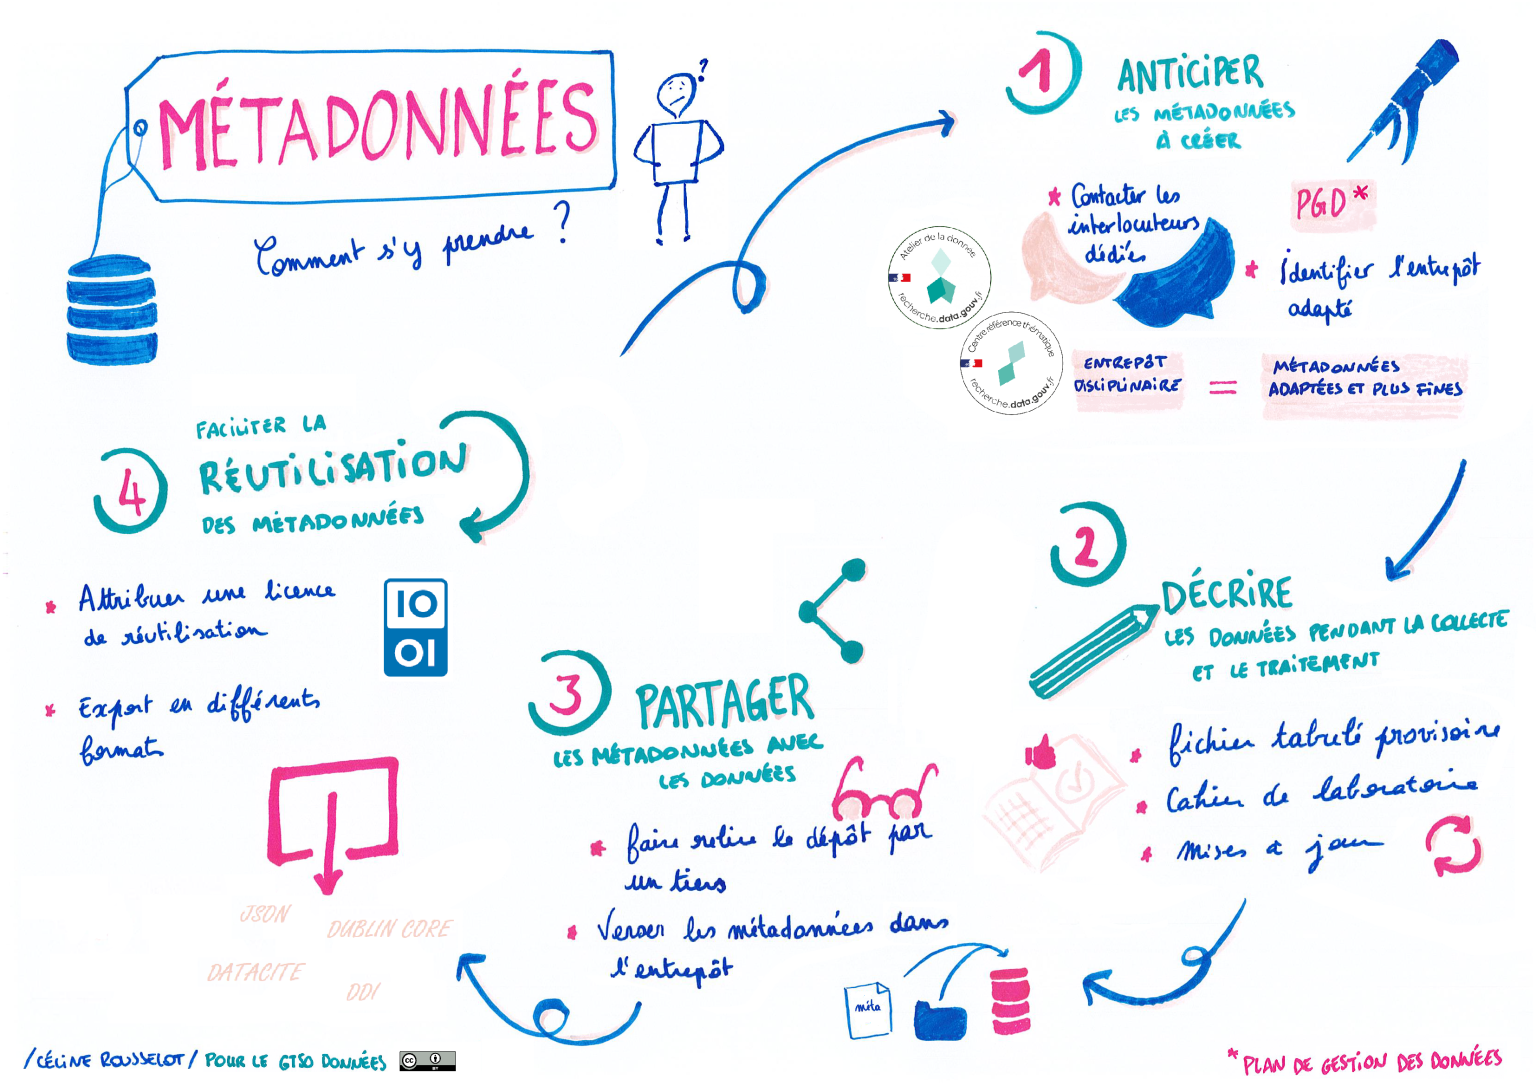 MÉTADONNÉES
?
Comment s'y prendre ?
1
ANTICIPER
LES MÉTADONNÉES
À CRÉER
* Contacter les
interlocuteurs
dédiés
PGD*
* Identifier l'entrepôt
adapté
Atelier de la donnée
recherche.data.gouv.fr
Centre référence thématique
recherche.data.gouv.fr
ENTREPÔT
DISCIPLINAIRE
=
MÉTADONNÉES
ADAPTÉES ET PLUS FINES
2
DÉCRIRE
LES DONNÉES PENDANT LA COLLECTE
ET LE TRAITEMENT
* fichier tabulé provisoire
* Cahier de laboratoire
* mises à jour
3
PARTAGER
LES MÉTADONNÉES AVEC
LES DONNÉES
* faire relire le dépôt par
un tiers
* Verser les métadonnées dans
l'entrepôt
méta
4
FACILITER LA
RÉUTILISATION
DES MÉTADONNÉES
* Attribuer une licence
de réutilisation
IO
OI
* Export en différents
formats
JSON
DUBLIN CORE
DATACITE
DDI
/CÉLINE ROUSSELOT/ POUR LE GTSO DONNÉES
cc
BY
*PLAN DE GESTION DES DONNÉES